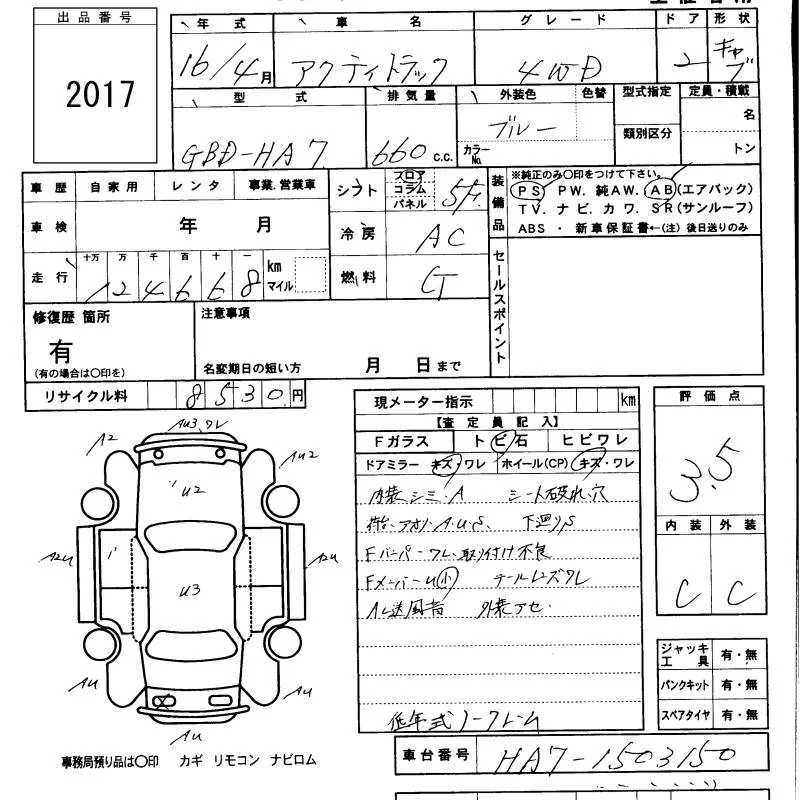 出品番号
2017
年式 車名 グレード ドア 形状
16/4月 アクティトラック 4WD 2 キャブ
型式 排気量 外装色 色替 型式指定 定員・積載
GBD-HA7 660 c.c. ブルー カラーNo. 類別区分 名 トン
車歴 自家用 レンタ 事業.営業車
シフト フロア コラム パネル 5F.
装備品
※純正のみ〇印をつけて下さい。
PS PW. 純AW. AB(エアバック)
TV. ナビ. カワ. SR(サンルーフ)
ABS ・ 新車保証書←(注) 後日送りのみ
車検 年 月
冷房 AC
走行 十万 万 千 百 十 一 km マイル
124668
燃料 G
セールスポイント
修復歴 箇所
有
(有の場合は〇印を)
注意事項
名変期日の短い方 月 日まで
リサイクル料 8530円
現メーター指示 km
【査定員記入】
Fガラス トビ石 ヒビワレ
ドアミラー キズ・ワレ ホイール(CP) キズ・ワレ
内装シミ.A シート破れ.穴
荷台、アオリ.A.U.S. 下廻りS
Fバンパーワレ、取り付け不良
Fメンバー U小 テールレンズワレ
AC送風音 外装アセ.
低年式ノークレーム
評価点
3.5
内装 外装
C C
ジャッキ工具 有・無
パンクキット 有・無
スペアタイヤ 有・無
車台番号 HA7-1503150
AU3.ワレ
A2
AU2
U2
A2U
A2U
U3
AU
AU
AU
事務局預り品は〇印 カギ リモコン ナビロム